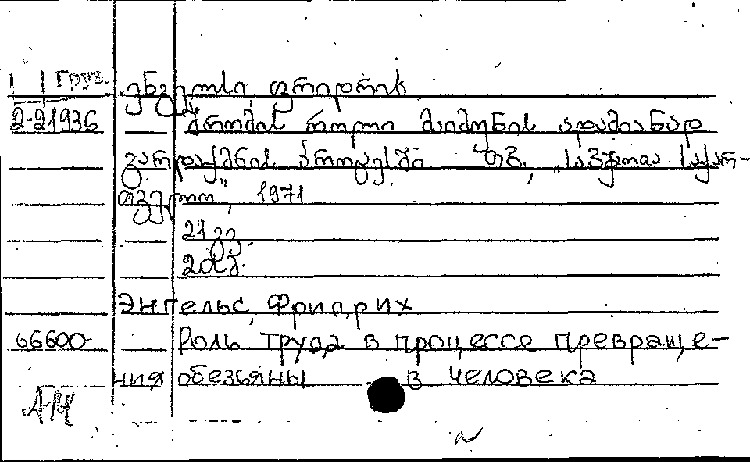 Груз. ენგელსი, ფრიდრიხ
2-21936 შრომის როლი მაიმუნის ადამიანად
გარდაქმნის პროცესში თბ., "საბჭოთა საქარ-
თველო", 1971
21 გვ.
20სმ.
Энгельс, Фридрих
66600 Роль труда в процессе превраще-
ния обезьяны в человека